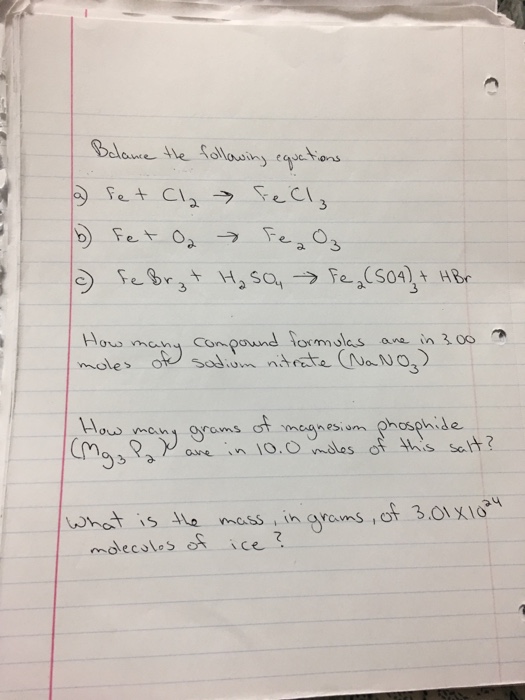 Balance the following equations
a) Fe + Cl₂ → FeCl₃
b) Fe + O₂ → Fe₂O₃
c) FeBr₃ + H₂SO₄ → Fe₂(SO4)₃ + HBr
How many compound formulas are in 3.00
moles of sodium nitrate (NaNO₃)
How many grams of magnesium phosphide
(Mg₃P₂) are in 10.0 moles of this salt?
What is the mass, in grams, of 3.01 X 10²⁴
molecules of ice?